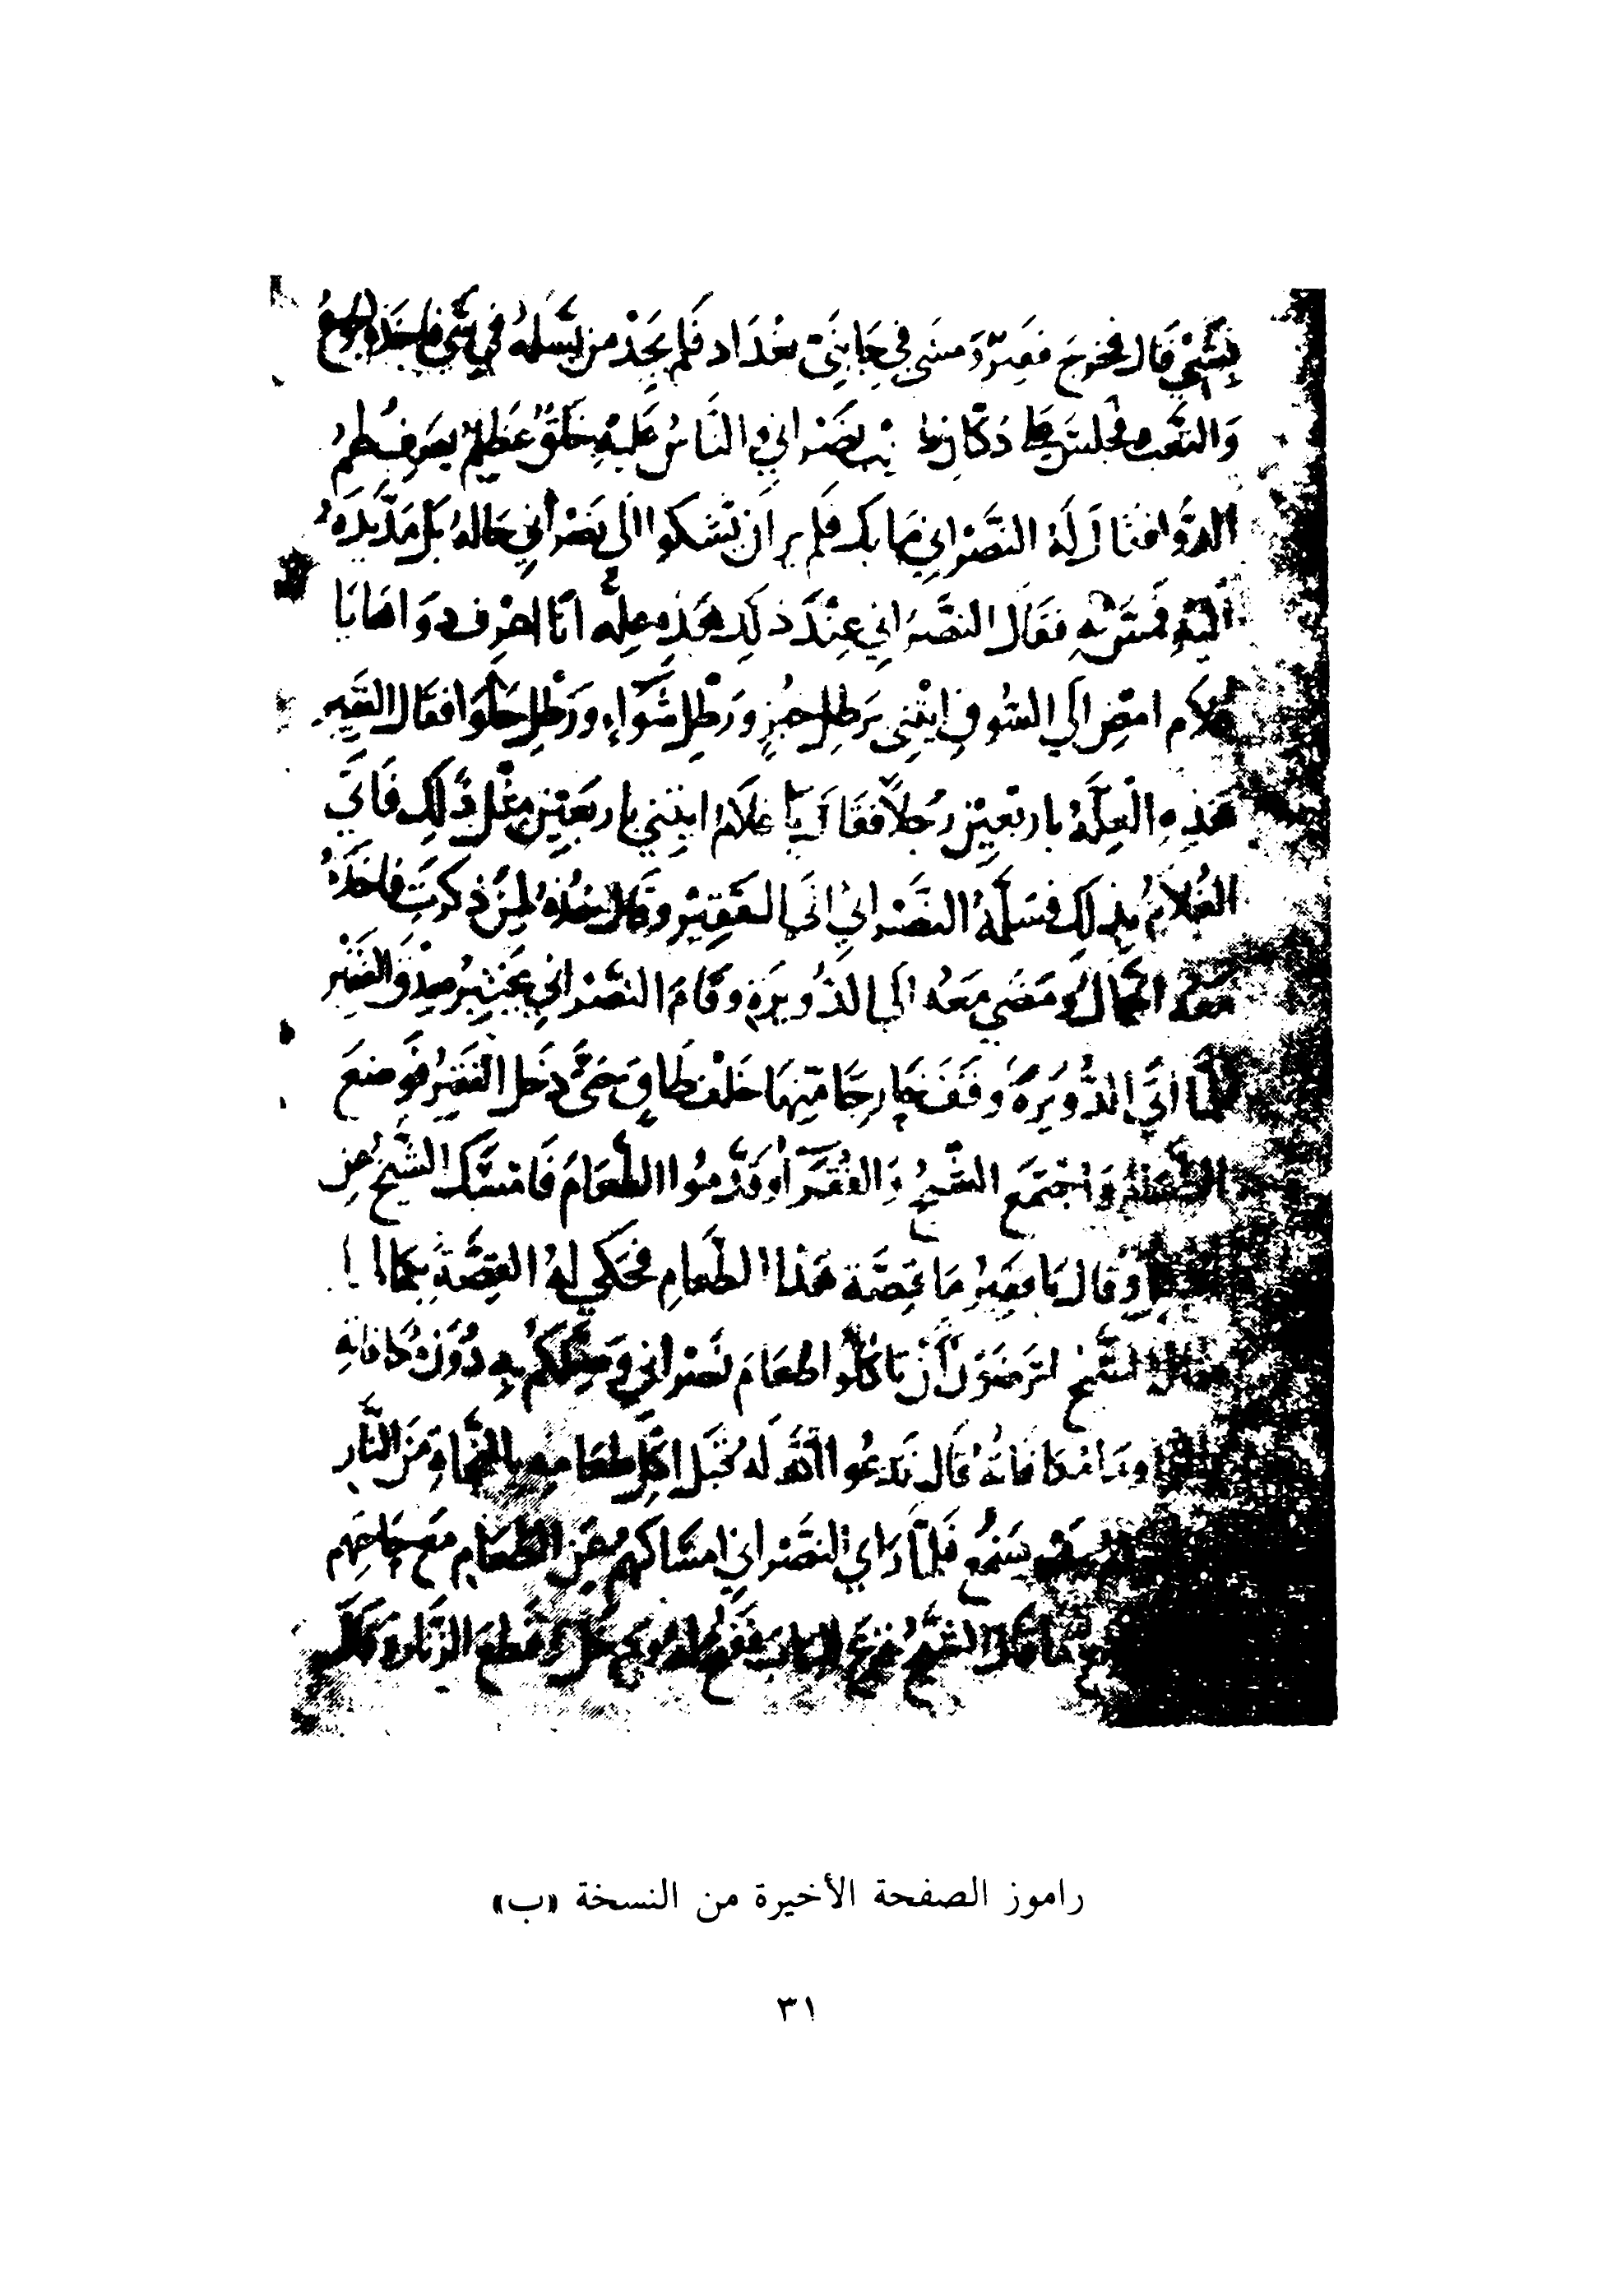 بِشَيْءٍ قَالَ فخرَجَ فقيرٌ وَمشَى في جَانِبَيْ بغْدَاد فَلم يَجِدْ من يَسْلهُ في شَيءٍ فاخذه الجوعُ
وَالتعَب فجلسَ على دكان طبيب نصْراني والنَاسُ عَليْهِ خلقٌ عَظيمٌ يصَرِفُ لهمُ
الدوَا فقالَ لَهُ النَّصْراني مَا بك فلم ير انْ يَشكوا الى نصْراني حَالهُ بَل مَدّ يَدهُ
اليْهِ فقَالَ النصَّرَاني عِنْدَ ذلك هَذِهِ علّه انَا اعرف دوَاهَا يَا
غلاَم امْضِ الي السُّوقِ ايتْنى برَطل خبزٍ ورَطْلِ شِوَاءٍ ورَطْلِ حَلوَا فقَال الفقير
هَذِهِ الْعِلَّةُ باربَعِيْن رَجُلاً فقَالَ يَا غلاَمُ ايتني باربَعيْنَ مثْل ذَلِك فَاتَى
الغُلاَمُ بذلك فسَلَّمَهُ النصْراني الَى الفَقيْر وقَال خُذْهُ لمنْ ذكرْتَ فاخَذَهُ
مَعَهُ الحمَّالُ ومَضَى مَعَه الَى الدُّوَيرَةِ وقَامَ النصْراني يَخْتبرُ صِدْقَ الفَقيْرِ
فلمَّا اتَى الدُّوَيرَةَ وَقفَ خارجَا مِنْهَا خلْف طاقٍ حَتّى دخَل الفَقيْرُ فوَضعَ
الطعَام وَاجْتمَع الشَّيْخُ وَالفُقَرَآءُ وقَدّمُوا الطّعَامَ فَامْسَك الشَّيْخُ عن
وقَال يَا فقيْرُ مَا قِصَّة هَذا الطَّعامِ فحَكى لهُ القِصَّة بكمالها
فقال الشَّيْخُ اترضَوْنَ أنْ تاكلُوا طعَامَ نصْراني وَصلكم بِهِ دُوْنَ مُكافاتِهِ
ومَا مُكافاتُهُ قَالَ تَدعُوا اللّه لهُ قبْل اكْل طعَامه بالنجَاةِ مَن النَّار
يسَمْعُ فَلمّا رَاي النصْراني امسَاكهُم عن الطعَام مَع حَاجَتهم
مَا قَالهُ الشَّيْخُ قرَع البَاب فَفُتِح لهُ فَدَخل وقطعَ الزنار وقَالَ
راموز الصفحة الأخيرة من النسخة «ب»
٣١